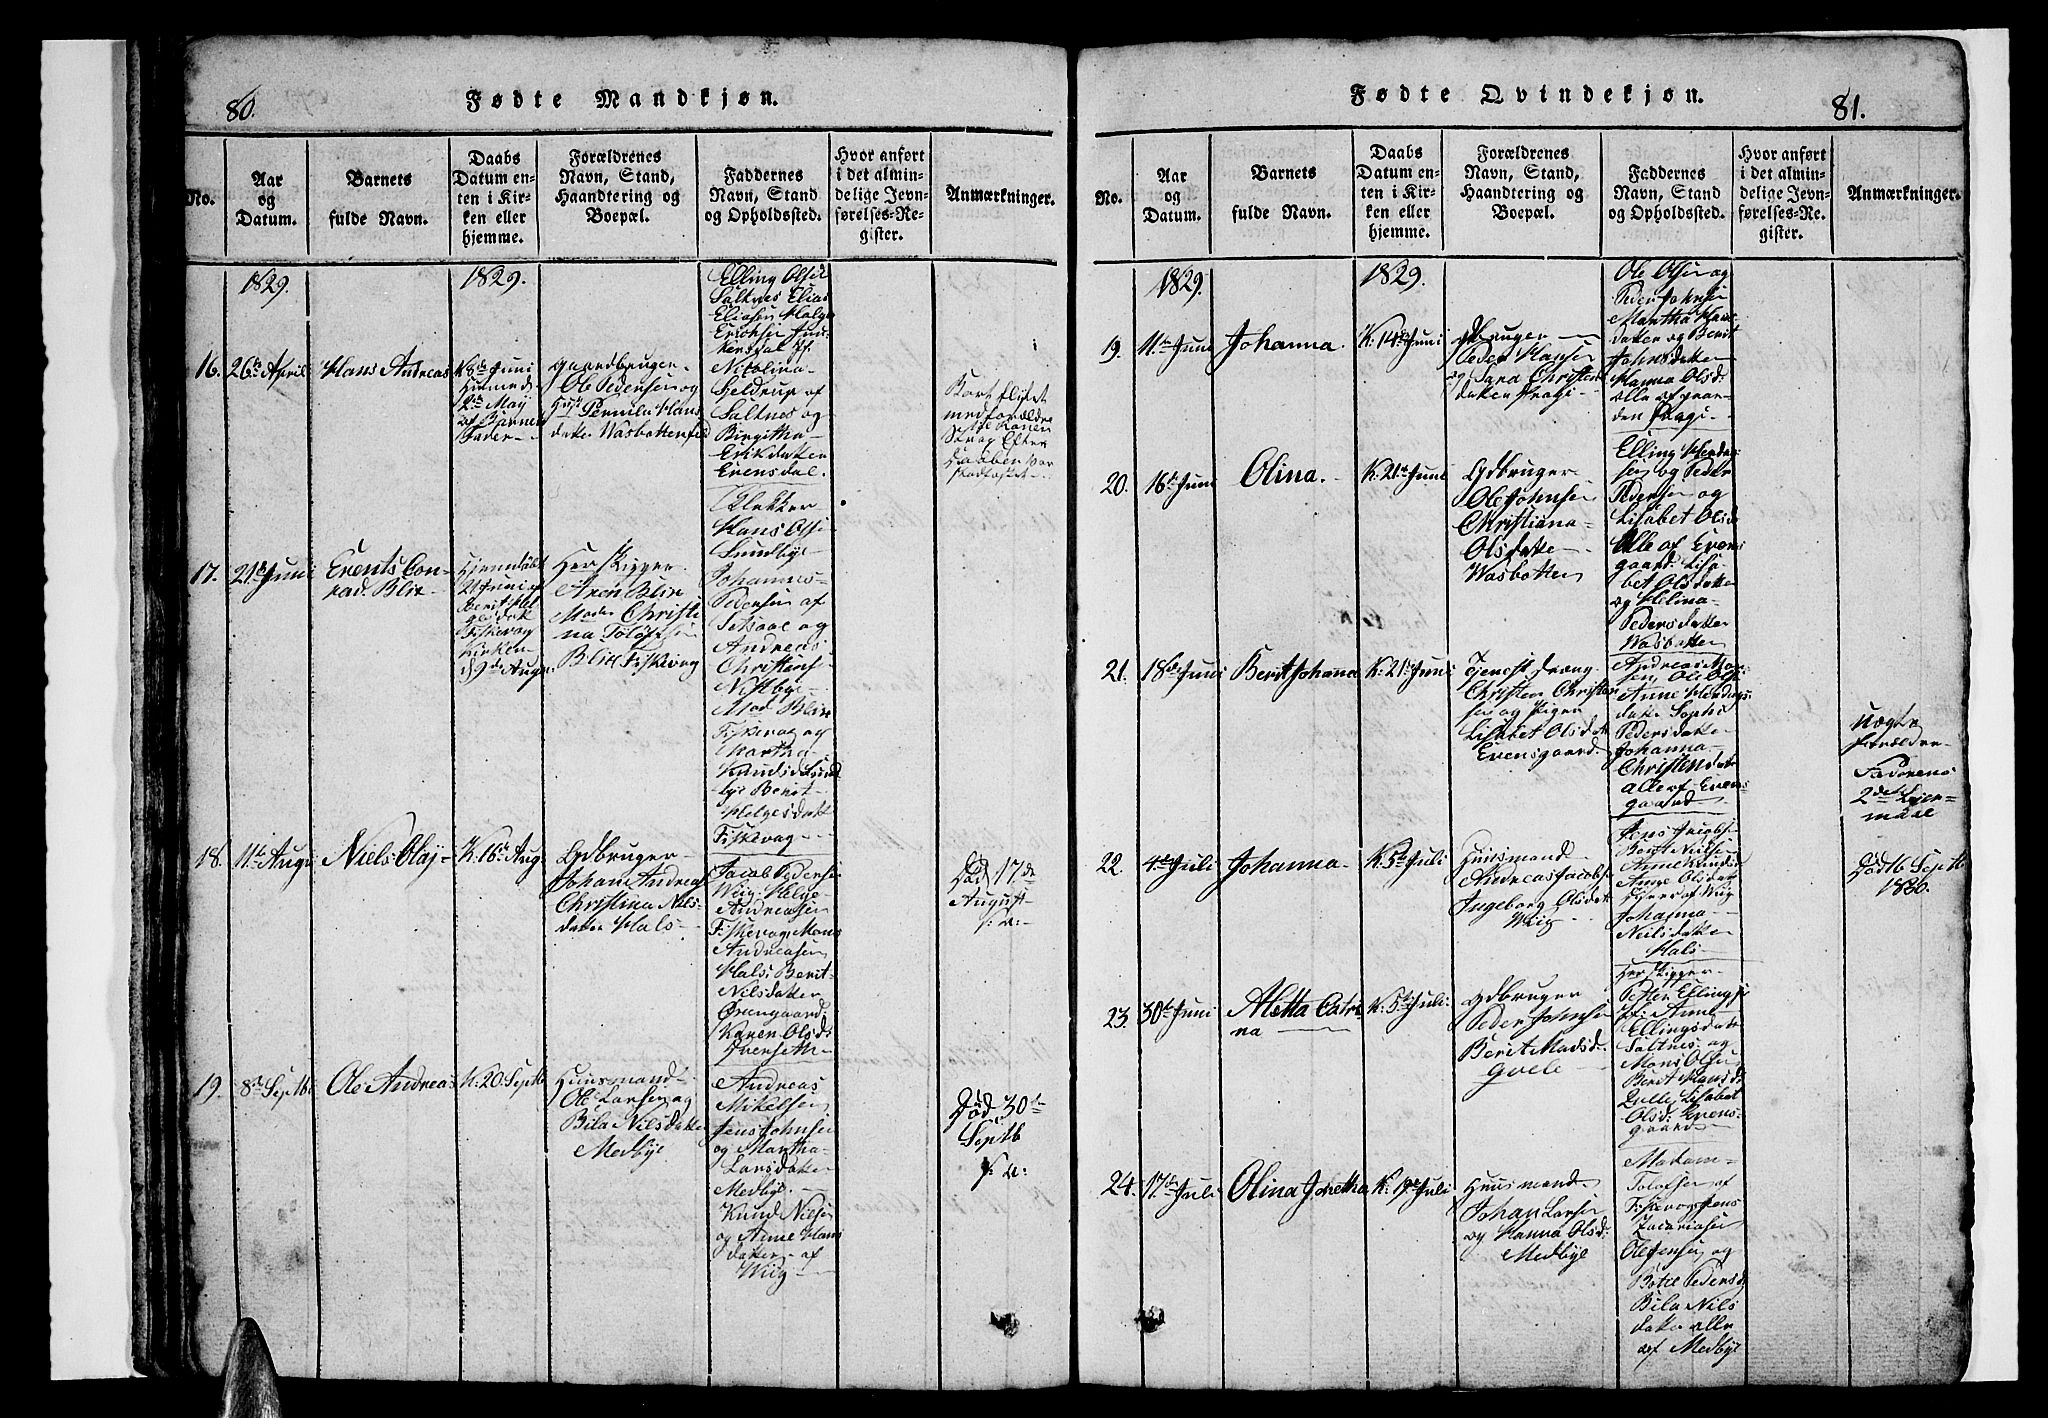 80.
Fødte Mandkjøn.
No.
Aar
og
Datum.
Barnets
fulde Navn.
Daabs
Datum en-
ten i Kir-
ken eller
hjemme.
Forældrenes
Navn, Stand,
Haandtering og
Boepæl.
Faddernes
Navn, Stand
og Opholdssted.
Hvor anført
i det almin-
delige Jevn-
førelses-Re-
gister.
Anmærkninger.
1829.
1829.
16.
26de April
Hans Andreas
K 8de Juni
Hiemmed
2den May
af Barnets
Fader
Gaardbruger
Ole Pedersen og
Pernila Hans
datter Wasbotten
Elling Olsen
Saltnes Elias
Eliasen Helge
Erichsen
Nicolina
Geldrup af
Saltnes og
Birgitha
Eriksdatter
Evensdal.
Bort flötet
med Forældre
17.
21de Juni
Events Con-
rad Blix
21 Juni af
Fiskevag
Kirken
d 9de Augu
Her Skipper
Aren Blix
Mader Christi
na Toløfsen
Blix Fiskevag
Klokker
Hans Olsen
Sundbye
Johannes
Pedersen af
Andreas
Christens
Mad Blix
Fiskevag og
Martha
Knudsd Sund
bye Berit
Helgesdatt
Fiskevag
18.
11te Augu
Niels Olaj
K. 16de Aug
Lydbruger
Johan Andreas
Christina Nils-
datter Hals
Jacob Pedersen
Wiig Helge
Andreasen
Fiskevag Mons
Andreasen
Hals Berit
Nilsdatter
Karen Olsd:
Død 17de
August
19.
8de Septb
Ole Andreas
K. 20 Septb
Huusmand
Ole Larsen og
Bila Nilsdatter
Medbye
Andreas
Mikelsen
Jens Johnsen
og Martha
Larsdatter
Medbye.
Knud Nilsen
og Anne Hans
datter af
Wiig
Død 30te
Septb
81.
Fødte Qvindekjøn.
No.
Aar
og
Datum.
Barnets
fulde Navn.
Daabs
Datum en-
ten i Kir-
ken eller
hjemme.
Forældrenes
Navn, Stand,
Haandtering og
Boepæl.
Faddernes
Navn, Stand
og Opholdssted.
Hvor anført
i det almin-
delige Jevn-
førelses-Re-
gister.
Anmærkninger.
1829.
1829.
19.
11te Juni
Johanna.
K. 14de Juni
Peder Hansen
og Sara Christens
datter
Ole Olsen og
Peder Johnsen
Martha Hans
datter og Berit
Johnsdatter
Hanna Olsd:
alle af gaar-
den
20.
16de Juni
Olina.
K. 21de Juni
Lydbruger
Ole Johnsen
Christiana
Olsdatter
Wasbotten
Elling
sen og Peder
Pedersen og
Lisabet Olsd
Alle af Evens
gaard. Lisa-
bet Olsdatter
og Helina
Pedersdatter
Wasbotten
21.
18de Juni
Berit Johana
K. 21de Juni
Tienest dræng
Christen Christen
sen og Pigen
Lisabet Olsdat
Evensgaard.
Andreas
sen, Ole Ols
Anne
datter Sophi
Pedersdatter
Johanna
Christensdatter
alle af Evens-
gaard
uægte
forældre
Faderens
2det Leier-
maal
22.
4de Juli
Johanna
K. 5te Juli
Huusmand
Andreas Jacobs
Ingeborg Olsdat
Wiig
Jens Jacobs
Bent Nilsen
Anne Knuds
Olsdat
af Wiig
Johanna
Neilsdatter
Hals
Død 16 Septb
1830.
23.
30te Juni
Aletta Catri-
na
K. 5te Juli
Lydbruger
Peder Johnsen
Berit Madsd.
Qvele
Her Skipper
Petter Ellings
Anne
Ellingsdatter
Saltnes og
Mons Olsen
Berit Hansd:
Lisabet
Olsd: Evens-
gaard
24.
17de Juli
Olina Johetha
K. 19de Juli
Huusmand
Johan Larsen
og Hanna Olsd:
Medbye
Madam
Tolofsen af
Fiskevag Jens
Zacariasen
Ole Jensen og
Pedersd
Bila Nils
datter alle
af Medbye